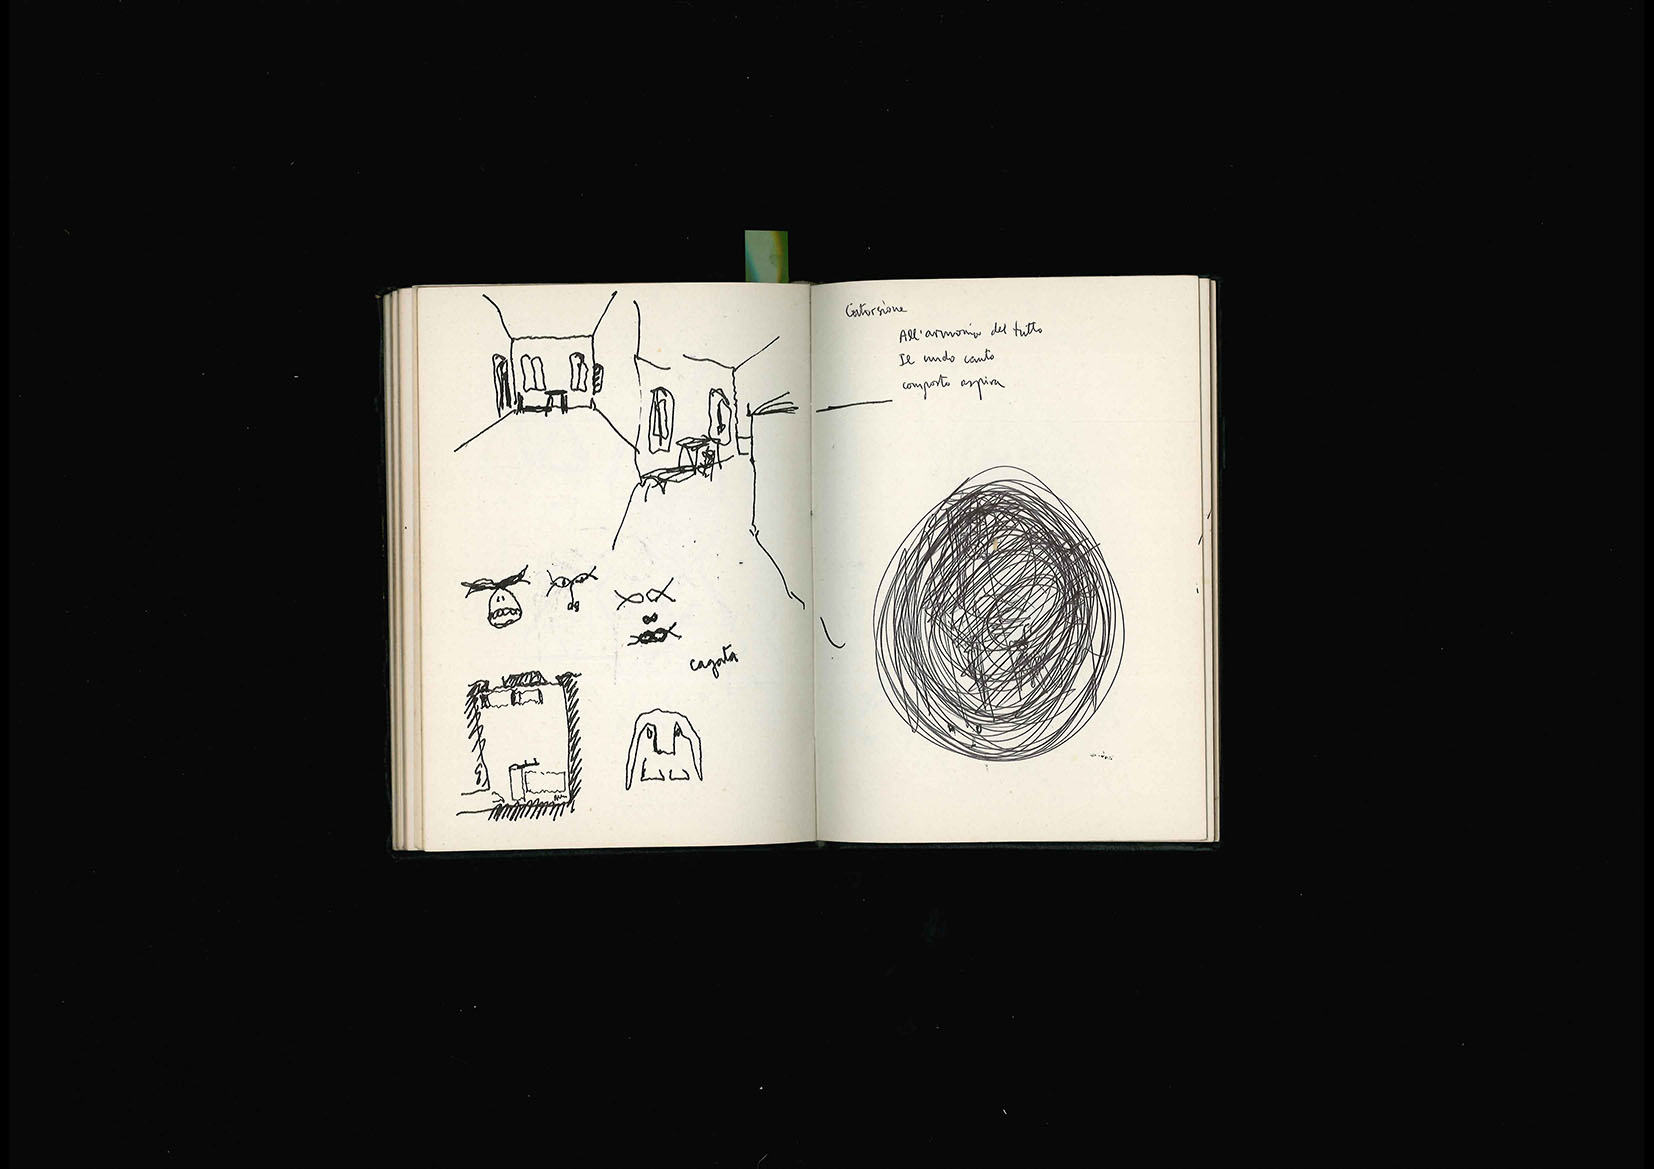 cagata
Contorsione
All'armonia del tutto
Il nudo canto
composto aspira